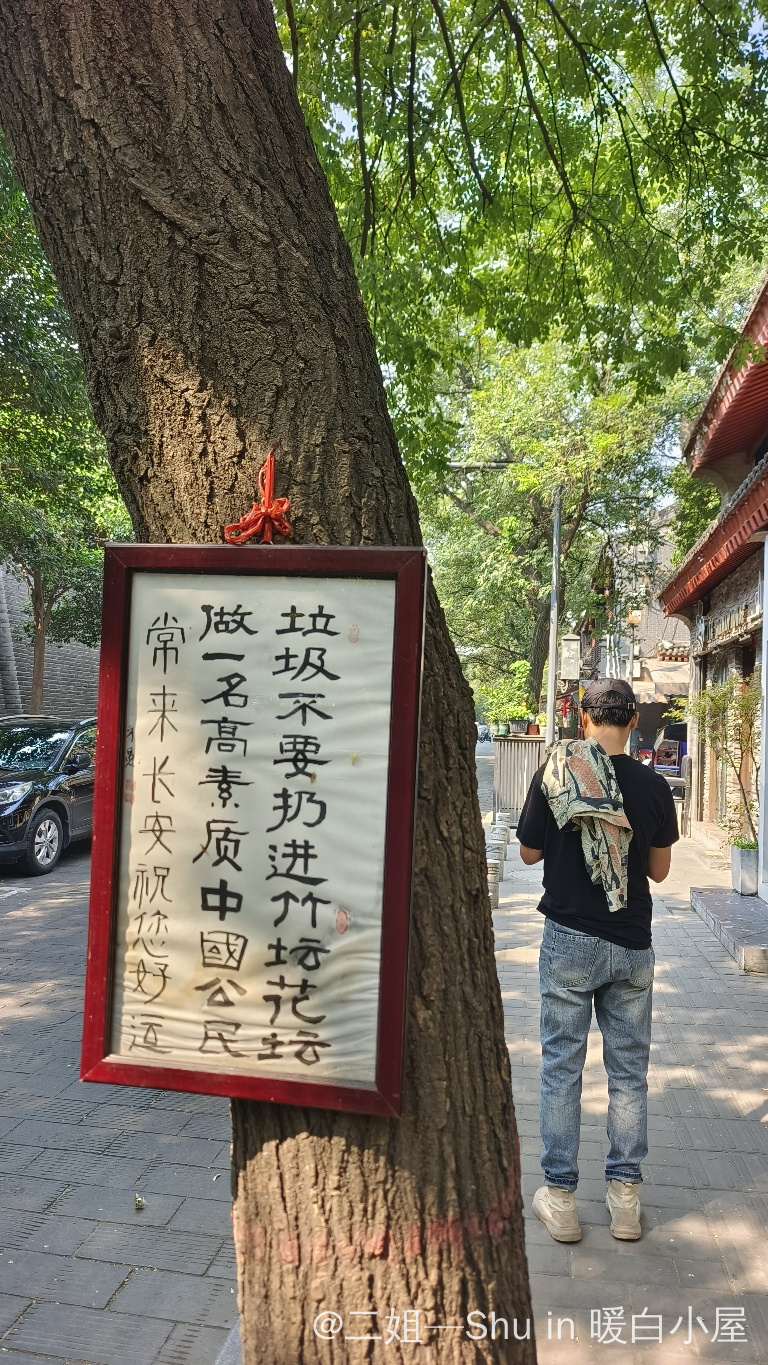 垃圾不要扔进竹坛花坛
做一名高素质中國公民
常来长安祝您好运
@二姐—Shu in 暖白小屋